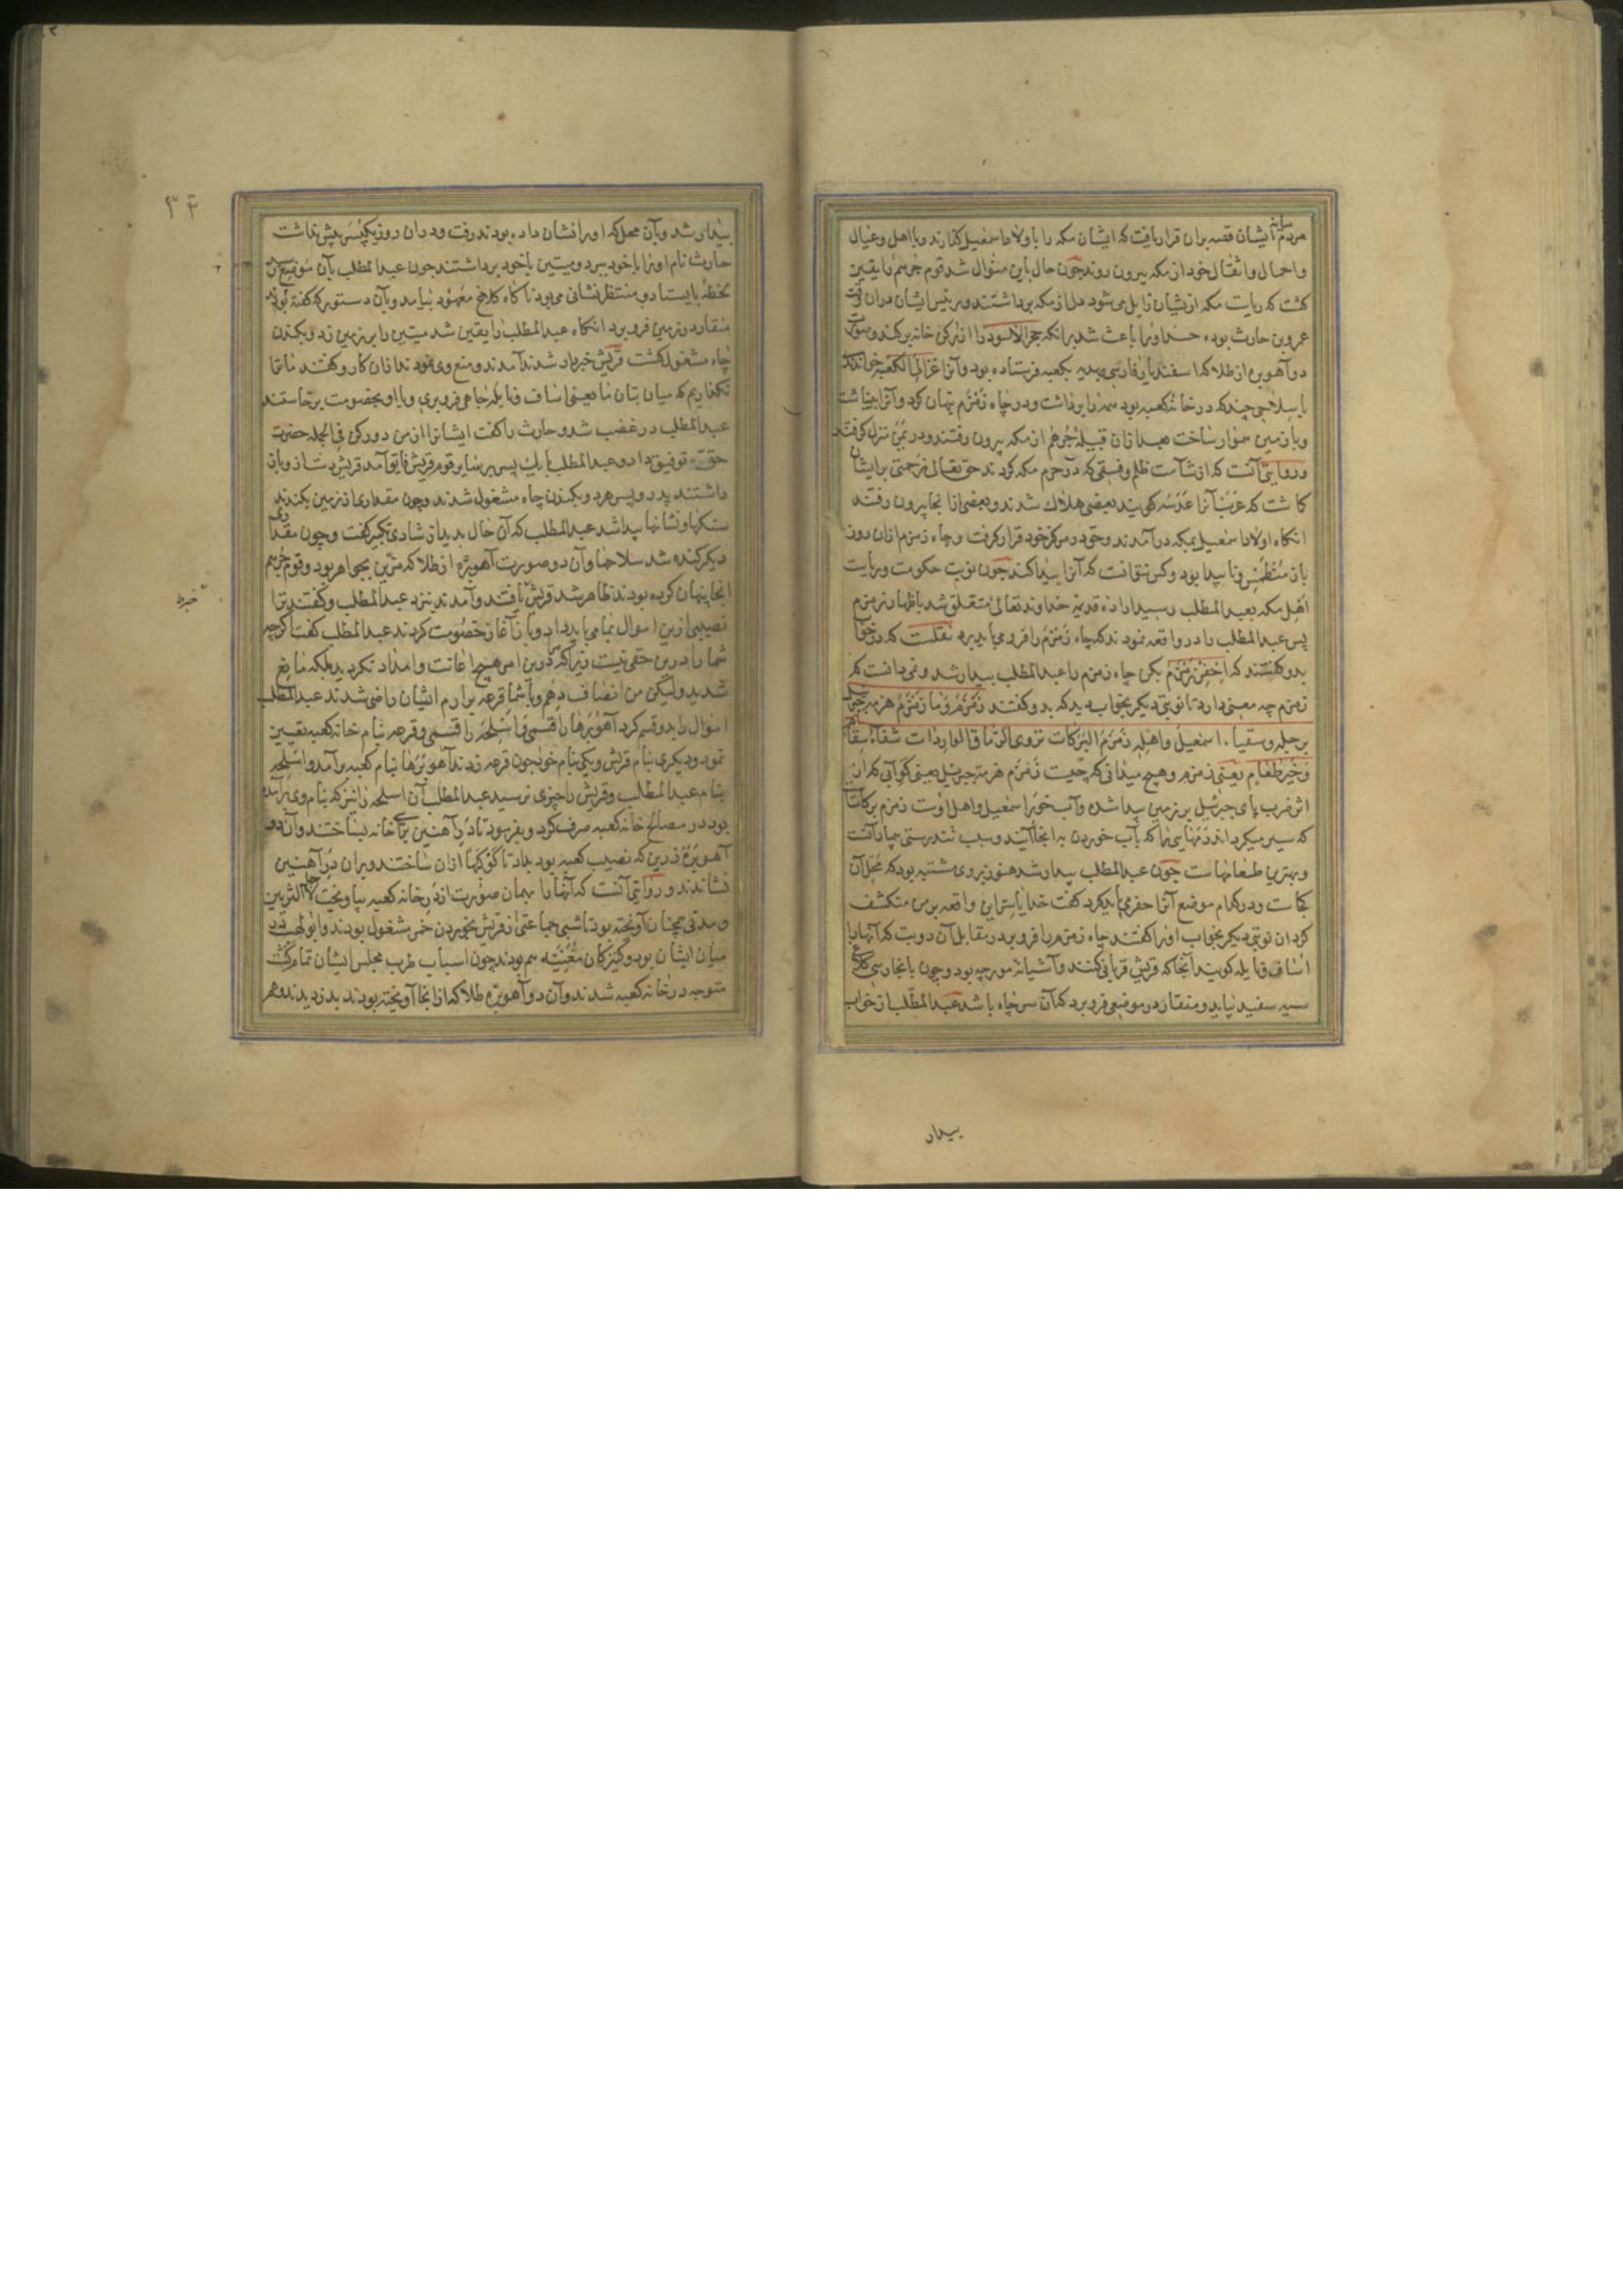 مردم ایشان قصه بران قرار یافت که ایشان مکه را با ولاد اسمعیل گذارند و با اهل و عیال
و احمال و اثقال خود از مکه بیرون روند چون حال باین منوال شد قوم جرهم را یقین
کشت که ریات مکه ازیشان زایل می شود دل از مکه برداشتند و رئیس ایشان دران وقت
عمرو بن حارث بوده حسد او را باعث شد برانکه حجر الاسود را از رکن خانه برکند و صورت
دو آهوبره از طلا که اسفندیار فارسی بهدیه بکعبه فرستاده بود و آنرا غزالی الکعبه خواندند
با سلاحی چند که در خانه کعبه بود همه را برداشت و در چاه زمزم پنهان کرد و آنرا بینباشت
و با زمین هموار ساخت بعد ازان قبیله جرهم از مکه بیرون رفتند و در یمن منزل گرفتند
و روایتی آنست که از شآمت ظلم و فسقی که در حرم مکه کردند حق تعالی زحمتی برایشان
کاشت که عرب آنرا عدسه گویند بعضی هلاک شدند و بعضی ازانجا بیرون رفتند
انکاه اولاد اسمعیل بمکه درآمدند و حق در مرکز خود قرار گرفت و چاه زمزم ازان روز
باز منطمس و ناپیدا بود و کس نتوانست که آنرا پیدا کند چون نوبت حکومت و ریاست
اهل مکه بعبد المطلب رسید ارادهٔ قدیمهٔ خداوند تعالی متعلق شد باظهار زمزم
پس عبد المطلب را در واقعه نمودند که چاه زمزم را فرو می باید برد نقلست که در خواب
بدو گفتند که احفر زمزم بکن چاه زمزم را عبد المطلب بیدار شد و نمی دانست که
زمزم چه معنی دارد تا نوبتی دیگر بخواب دید که بدو گفتند زمزم و ما زمزم هزمة جبرئیل
برجله و سقیا اسمعیل و اهله زمزم البرکات تروی الرفاق الواردات شفاء سقام
و خیر طعام یعنی زمزم و هیچ میدانی که چیست زمزم هزمة جبرئیل یعنی گو آبی که از
اثر ضرب پای جبرئیل بر زمین پیدا شده و آب خور اسمعیل و اهل اوست زمزم برکات
که سیر میکرداند رفقهایی را که بآب خوردن به انجا آیند و سبب تندرستی بیمارانست
و بهترین طعامهاست چون عبد المطلب بیدار شد هنوز بروی مشتبه بود که محل آن
کجاست و در کدام موضع آنرا حفر می باید کرد گفت خدایا سر این واقعه بر من منکشف
کردان نوبتی دیگر بخواب او را گفتند چاه زمزم را فرو برد در مقابل آن دو بت که آنها را
اساف و نایله گویند آنجا که قریش قربانی کنند و آشیانهٔ مورچه بود و چون بانجا رسی کلاغ
سیه سفید بیاید و منقار در موضعی فرو برد که آن سر چاه باشد عبد المطلب از خواب
بیدار
۳۴
بیدار شد و بآن محل که او را نشان داده بودند رفت و دران روز یک پسر بیش نداشت
حارث نام او را با خود ببرد و میتین با خود برداشتند چون عبد المطلب بآن موضع رسید
لحظهٔ بایستاد و منتظر نشانی می بود ناکاه کلاغ معهود بیامد و بآن دستور که گفته بودند
منقار در زمین فرو برد انکاه عبد المطلب را یقین شد میتین را بر زمین زد و بکندن
چاه مشغول کشت قریش خبردار شدند آمدند و منع وی نمودند ازان کار و گفتند ما ترا
نکذاریم که میان بتان ما یعنی اساف و نایله چاهی فرو بری و با او بخصومت برخاستند
عبد المطلب در غضب شد و حارث را گفت ایشانرا از من دور کن فی الجمله حضرت
حق توفیق داد و عبد المطلب با یک پسر بر سایر قوم قریش فایق آمد قریش دست از وباز
داشتند پدر و پسر هر دو بکندن چاه مشغول شدند و چون مقداری از زمین بکندند
سنکها و نشانها پیدا شد عبد المطلب که آن حال بدید از شادی تکبیر گفت و چون مقداری
دیگر کنده شد سلاحها و آن دو صورت آهوبره از طلا که مزین بجواهر بود و قوم جرهم
انجا پنهان کرده بودند ظاهر شد قریش یافتند و آمدند نزد عبد المطلب و گفتند ترا
خبر
نصیبی ازین اموال بما می باید داد و باز آغاز خصومت کردند عبد المطلب گفت اکرچه
شما را درین حقی نیست زیرا که درین امر هیچ اعانت و امداد نکردید بلکه مانع
شدید ولیکن من انصاف دهم و با شما قرعه برآرم ایشان راضی شدند عبد المطلب
اموال را بدو قسم کرد آهوبرها را قسمی و اسلحه را قسمی و قرعه بنام خانه کعبه تعیین
نمود و دیگری بنام قریش و یکی بنام خود چون قرعه زدند آهوبرها بنام کعبه برآمد و اسلحه
بنام عبد المطلب و قریش را چیزی نرسید عبد المطلب آن اسلحه را نیز که بنام وی برآمده
بود در مصالح خانه کعبه صرف کرد و بفرمود تا در آهنین برای خانه بساختند و آن دو
آهوبرهٔ زرین که نصیب کعبه بود بداد تا کوکبها ازان ساختند و بران در آهنین
نشاندند و روایتی آنست که آنها را بهمان صورت از در خانه کعبه بیاویخت
و مدتی همچنان آویخته بود تا شبی جماعتی از قریش بخوردن خمر مشغول بودند و ابو لهب در
میان ایشان بود و کنیزکان مغنیه هم بودند چون اسباب طرب مجلس ایشان تمام کشت
متوجه در خانه کعبه شدند و آن دو آهوبره طلا که ازانجا آویخته بودند بدزدیدند و هر